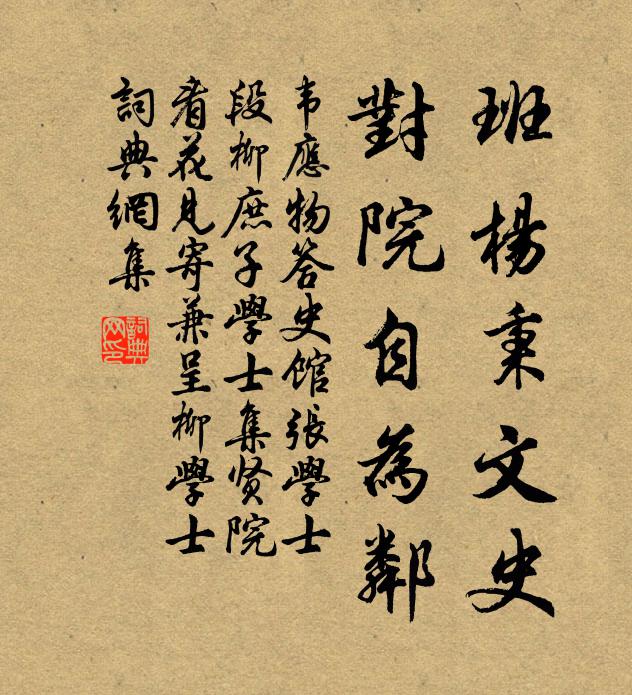 班楊秉文史
對院自為鄰
韦應物答史馆張學士
段柳庶子學士集贤院
看花見寄兼呈柳學士
詞典網集
詞典
网印